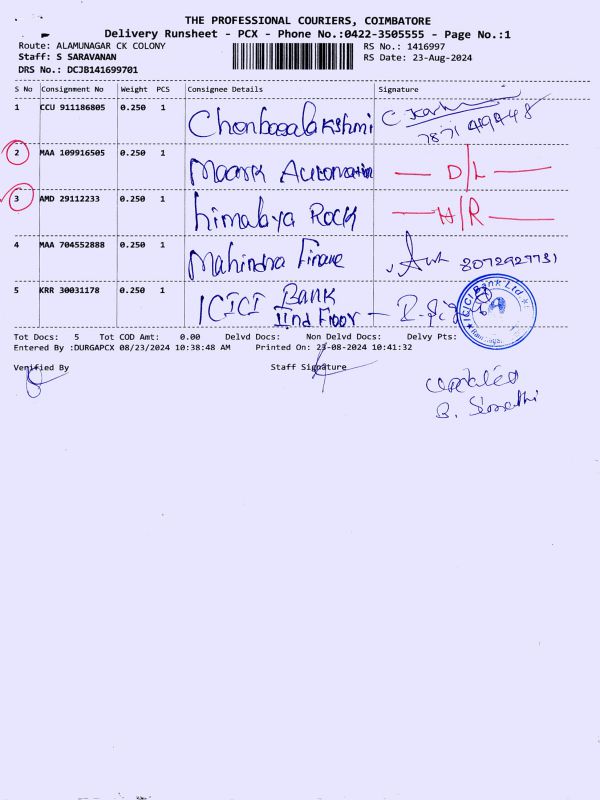 THE PROFESSIONAL COURIERS, COIMBATORE
Delivery Runsheet - PCX - Phone No.:0422-3505555 - Page No.:1
Route: ALAMUNAGAR CK COLONY
RS No.: 1416997
Staff: S SARAVANAN
RS Date: 23-Aug-2024
DRS No.: DCJB141699701
S No Consignment No Weight PCS Consignee Details Signature
1 CCU 911186805 0.250 1
2 MAA 109916505 0.250 1 D/L
3 AMD 29112233 0.250 1 himalaya Rock H/R
4 MAA 704552888 0.250 1 Mahindra Finane 8072927731
5 KRR 30031178 0.250 1 ICICI Bank
IInd Floor
ICICI Bank Ltd
Tot Docs: 5 Tot COD Amt: 0.00 Delvd Docs: Non Delvd Docs: Delvy Pts:
Entered By :DURGAPCX 08/23/2024 10:38:48 AM Printed On: 23-08-2024 10:41:32
Verified By Staff Signature